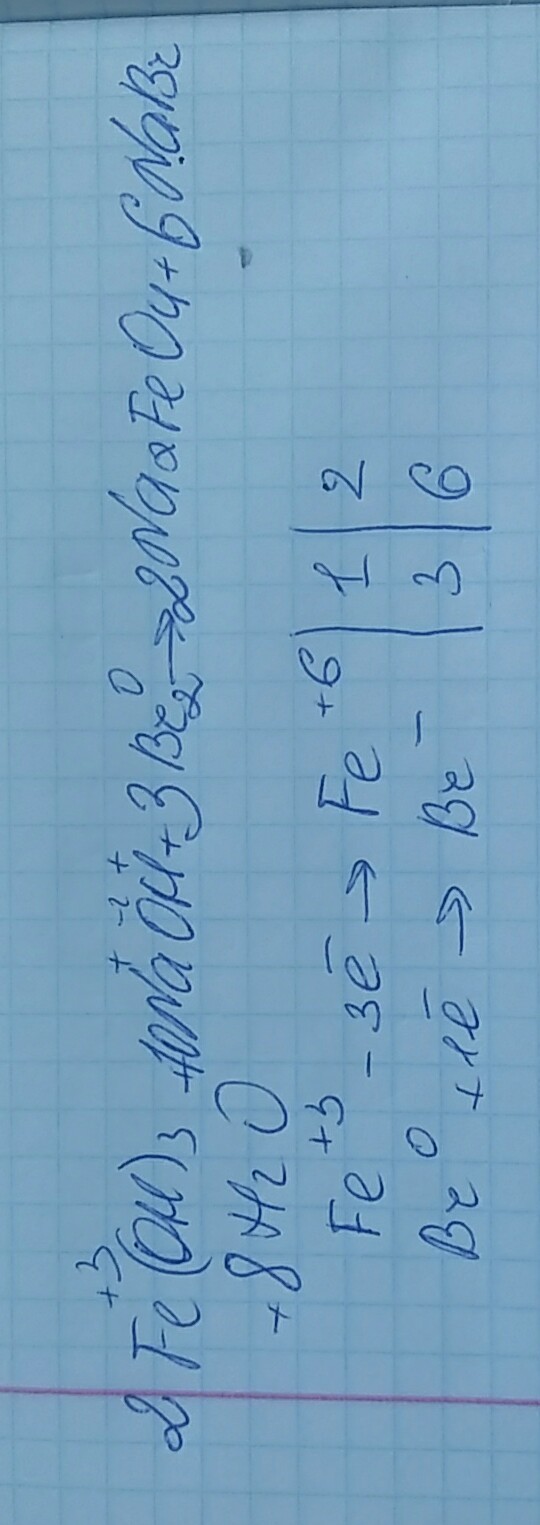 2Fe⁺³(OH)₃ + 10Na⁺O⁻²H⁺ + 3Br₂⁰ → 2Na₂FeO₄ + 6NaBr
+ 8H₂O
Fe⁺³ - 3ē → Fe⁺⁶ | 1 | 2
Br⁰ + 1ē → Br⁻ | 3 | 6